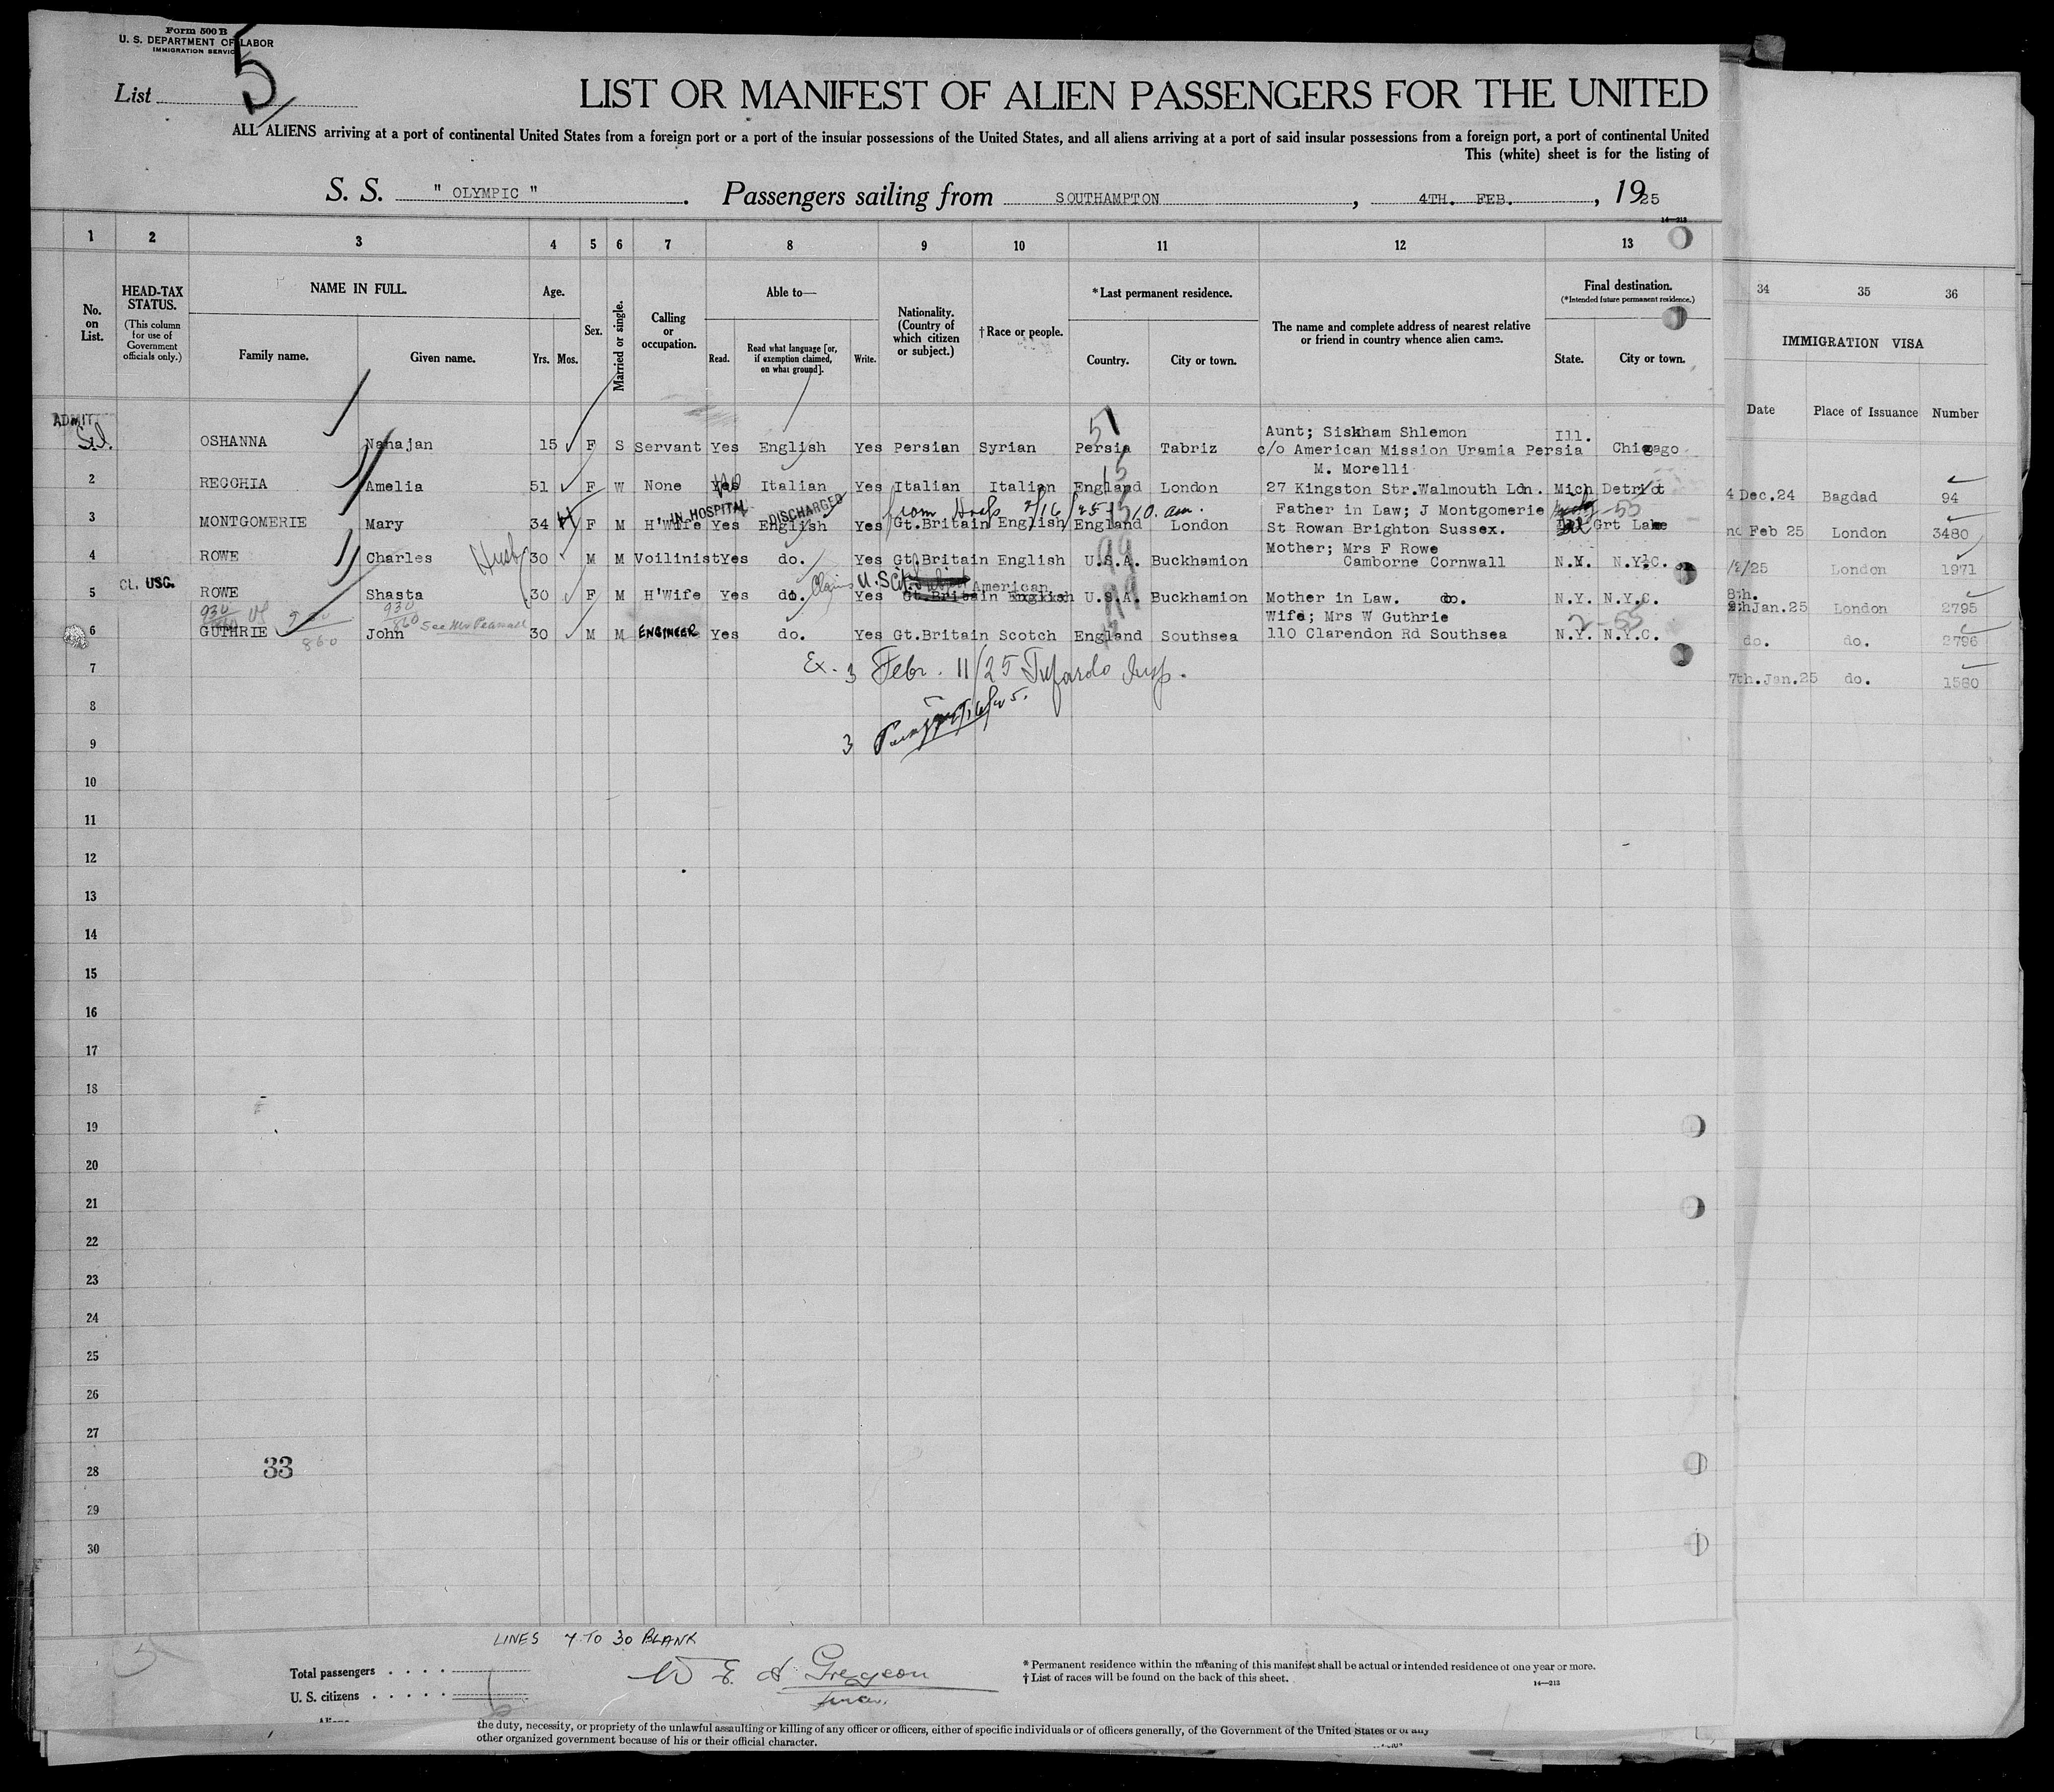 Form 500 B
U. S. DEPARTMENT OF LABOR
IMMIGRATION SERVICE
List 5
LIST OR MANIFEST OF ALIEN PASSENGERS FOR THE UNITED
ALL ALIENS arriving at a port of continental United States from a foreign port or a port of the insular possessions of the United States, and all aliens arriving at a port of said insular possessions from a foreign port, a port of continental United
This (white) sheet is for the listing of
S. S. " OLYMPIC ". Passengers sailing from SOUTHAMPTON, 4TH. FEB., 1925
14—213
1 2 3 4 5 6 7 8 9 10 11 12 13
34 35 36
No. on List.
HEAD-TAX STATUS.
(This column for use of Government officials only.)
NAME IN FULL.
Family name. Given name.
Age.
Yrs. Mos.
Sex.
Married or single.
Calling or occupation.
Able to—
Read. Read what language [or, if exemption claimed, on what ground]. Write.
Nationality. (Country of which citizen or subject.)
†Race or people.
*Last permanent residence.
Country. City or town.
The name and complete address of nearest relative or friend in country whence alien came.
Final destination.
(*Intended future permanent residence.)
State. City or town.
IMMIGRATION VISA
Date Place of Issuance Number
ADMIT
5
Aunt; Siskham Shlemon
OSHANNA Nanajan 15 F S Servant Yes English Yes Persian Syrian Persia Tabriz c/o American Mission Uramia Persia Ill. Chicago
M. Morelli
2 RECCHIA Amelia 51 F W None Yes No Italian Yes Italian Italian England London 27 Kingston Str.Walmouth Ldn. Mich Detriot
4 Dec.24 Bagdad 94
IN HOSPITAL DISCHARGED from Hosp 2/16/25 10. am.
Father in Law; J Montgomerie
3 MONTGOMERIE Mary 34 H F M H'Wife Yes English Yes Gt.Britain English England London St Rowan Brighton Sussex. Grt Lake
Feb 25 London 3480
Mother; Mrs F Rowe
4 ROWE Charles Husb 30 M M Voilinist Yes do. Yes Gt.Britain English U.S.A. Buckhamion Camborne Cornwall N.Y. N.Y.C.
/2/25 London 1971
CL. USC.
Claims U.S Cit. American
5 ROWE Shasta 30 F M H'Wife Yes do. Yes Gt.Britain English U.S.A. Buckhamion Mother in Law. do. N.Y. N.Y.C.
8th.
Jan.25 London 2795
930
860
930
860
Wife; Mrs W Guthrie
2-55
6 GUTHRIE John 30 M M ENGINEER Yes do. Yes Gt.Britain Scotch England Southsea 110 Clarendon Rd Southsea N.Y. N.Y.C.
do. do. 2796
7 Ex. 3 Febr. 11/25
7th.Jan.25 do. 1580
8
9 3
10
11
12
13
14
15
16
17
18
19
20
21
22
23
24
25
26
27
28 33
29
30
LINES 7 TO 30 BLANK
Total passengers . . . .
U. S. citizens . . . . .
W E A Gregson
* Permanent residence within the meaning of this manifest shall be actual or intended residence of one year or more.
† List of races will be found on the back of this sheet.
14—213
the duty, necessity, or propriety of the unlawful assaulting or killing of any officer or officers, either of specific individuals or of officers generally, of the Government of the United States or of any
other organized government because of his or their official character.